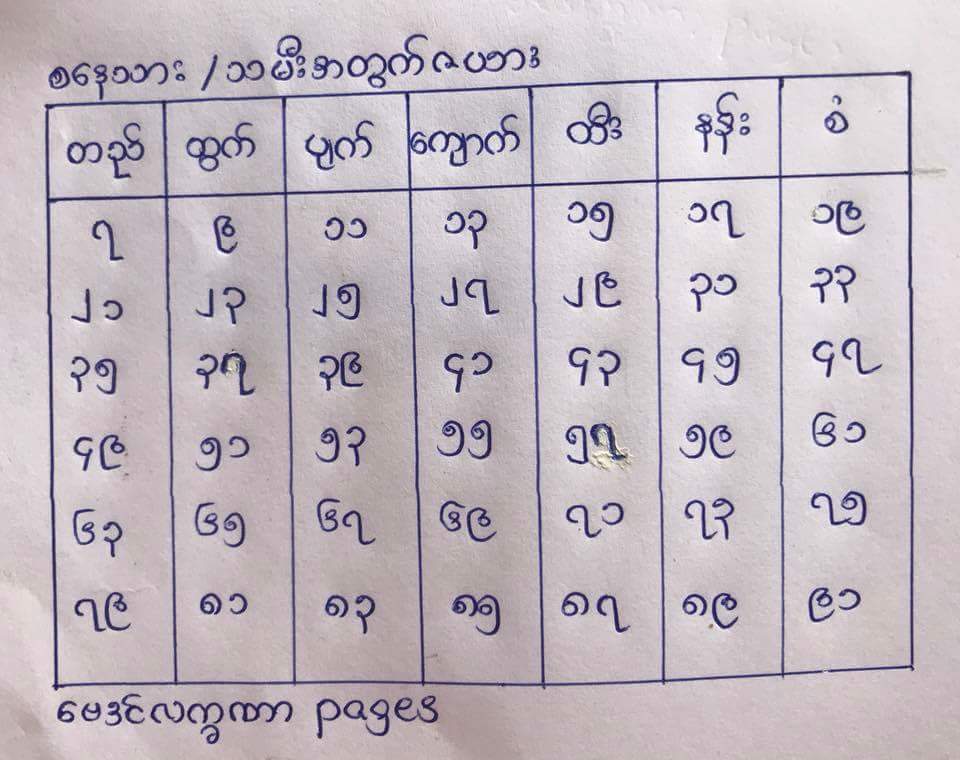 စနေသား /သမီးအတွက်ဇယား
တည် ထွက် ပျက် ကျောက် ထီး နန်း စံ
၇ ၉ ၁၁ ၁၃ ၁၅ ၁၇ ၁၉
၂၁ ၂၃ ၂၅ ၂၇ ၂၉ ၃၁ ၃၃
၃၅ ၃၇ ၃၉ ၄၁ ၄၃ ၄၅ ၄၇
၄၉ ၅၁ ၅၃ ၅၅ ၅၇ ၅၉ ၆၁
၆၃ ၆၅ ၆၇ ၆၉ ၇၁ ၇၃ ၇၅
၇၉ ၈၁ ၈၃ ၈၅ ၈၇ ၈၉ ၉၁
ဗေဒင်လက္ခဏာ pages